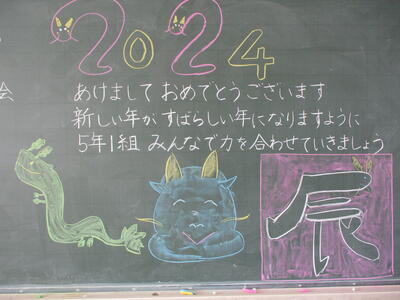 2024
会
あけまして おめでとうございます
新しい年が すばらしい年になりますように
5年1組 みんなで力を合わせていきましょう
辰